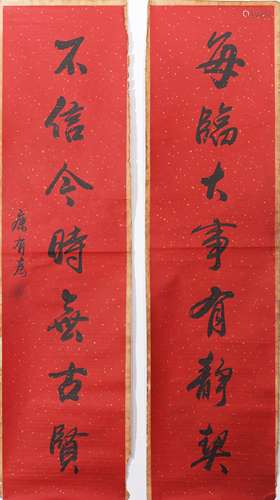 每臨大事有靜契
不信今時無古賢
康有為